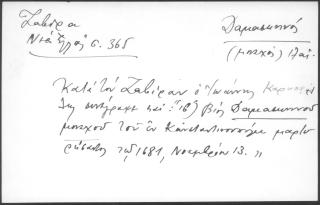 Ζαβίρα
Νέα Ἑλλάς σ. 365
Δαμασκηνός
(μοναχός)
Κατὰ τὸν Ζαβίραν ὁ Ἰωάννης Καρυοφύλ
λης συνέγραψε καὶ: "16) βίος Δαμασκηνοῦ
μοναχοῦ τοῦ ἐν Κωνσταντινουπόλει μαρτυ
ρήσαντος τῷ 1681, Νοεμβρίου 13. "